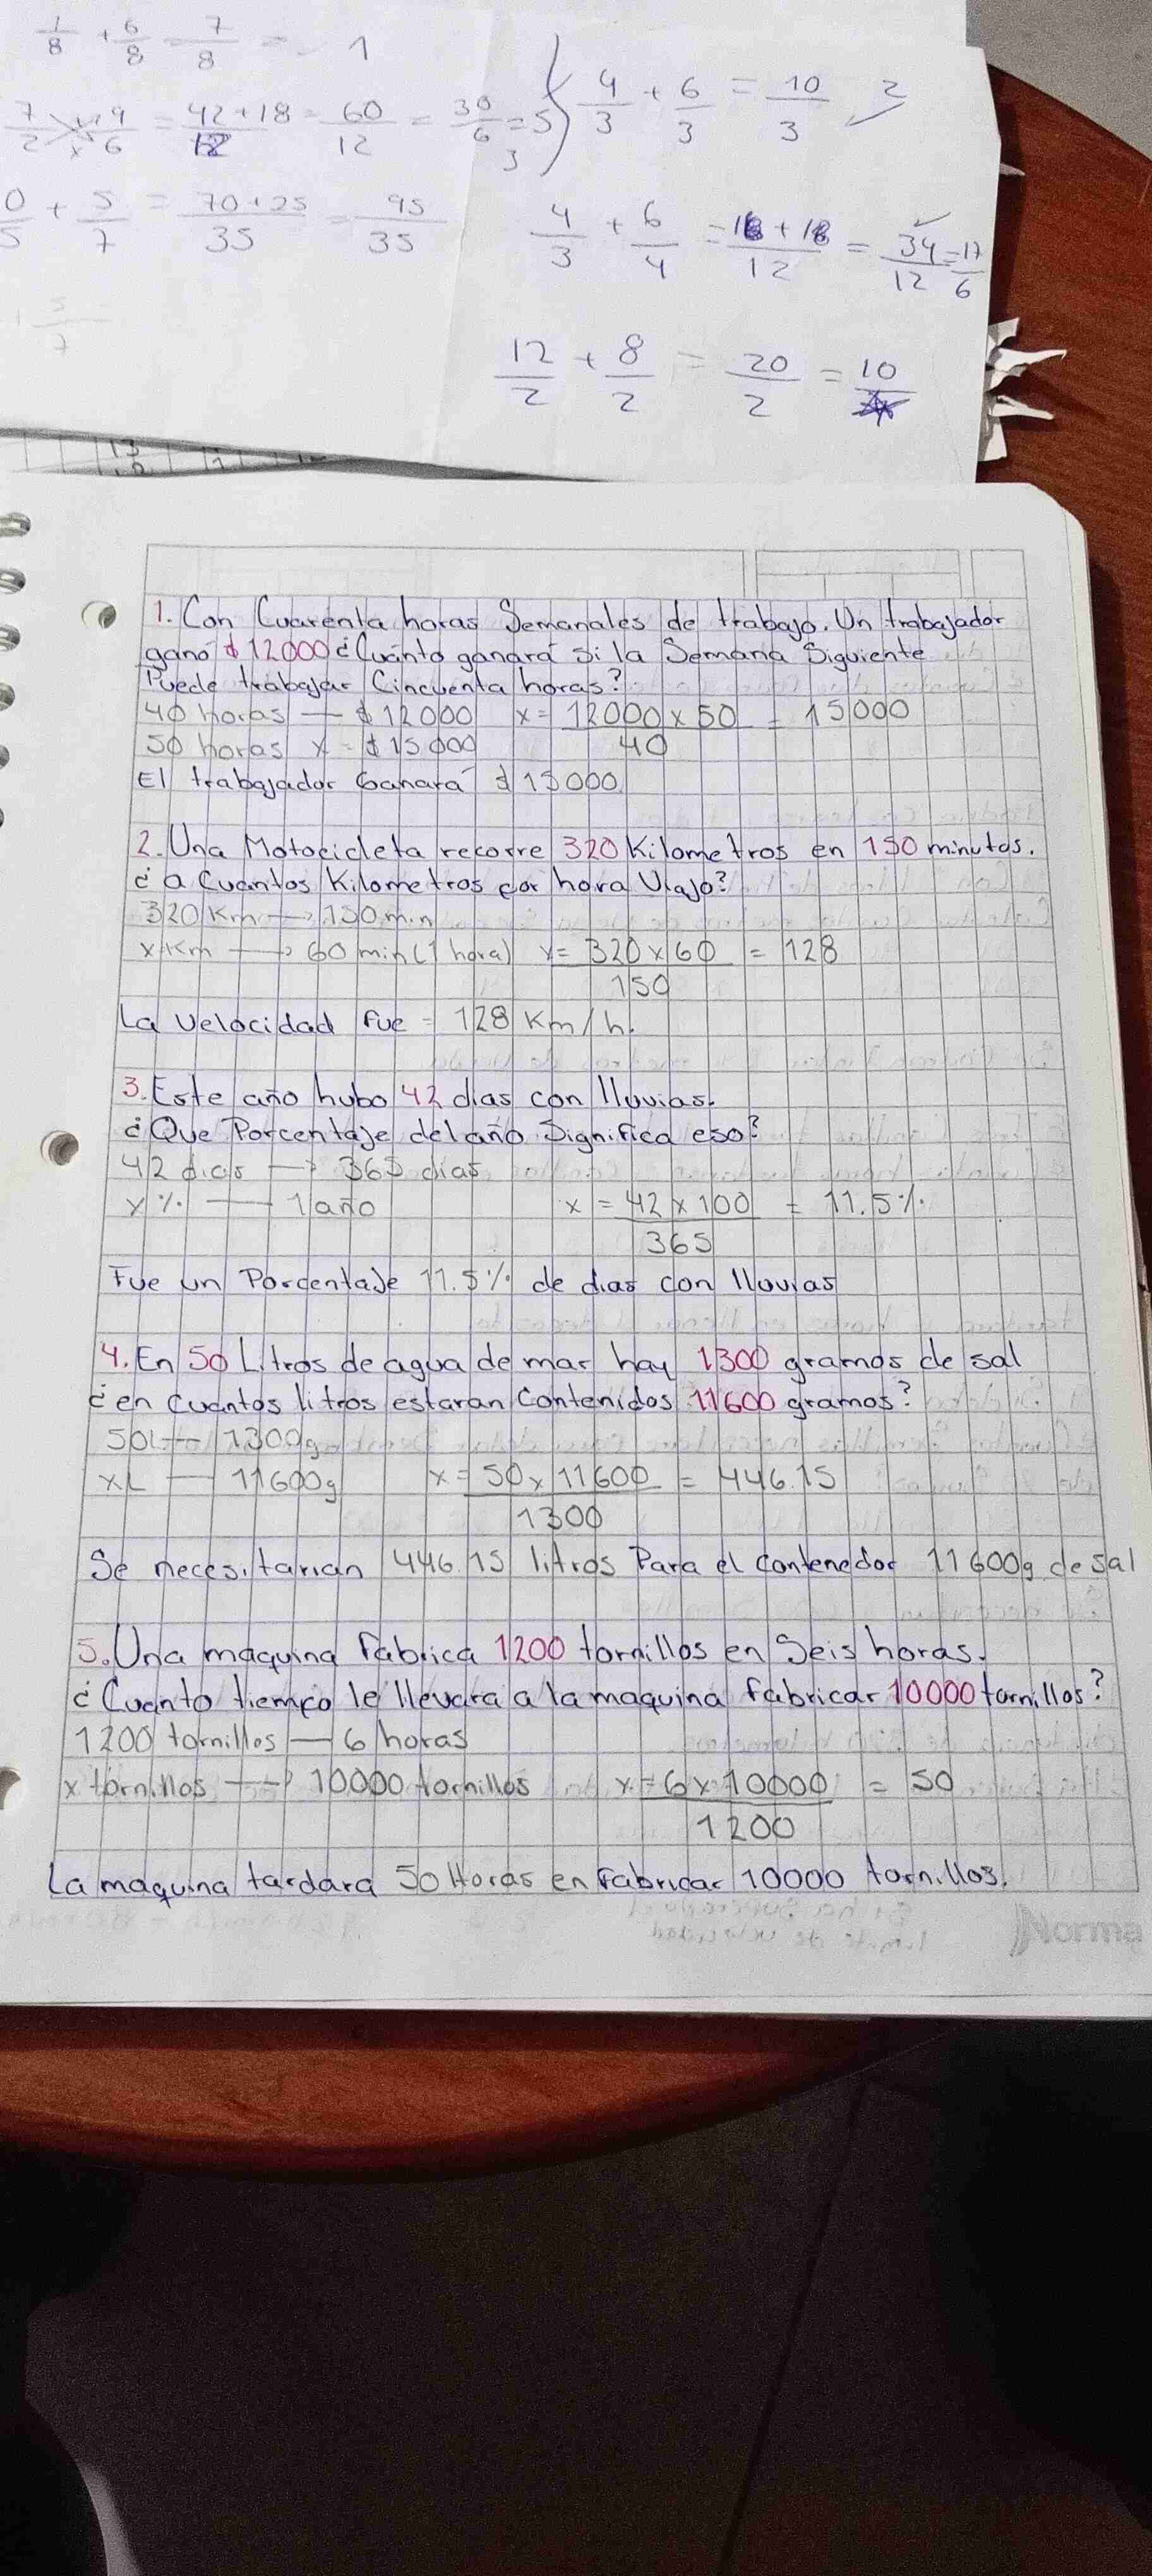 1/8 + 6/8 = 7/8 = 1
7/2 × 9/6 = 42+18/12 = 60/12 = 30/6 = 5
3
4/3 + 6/3 = 10/3
0/5 + 5/7 = 70+25/35 = 95/35
4/3 + 6/4 = 16+18/12 = 34/12 = 17/6
5/7
12/2 + 8/2 = 20/2 = 10
1. Con Cuarenta horas Semanales de trabajo. Un trabajador
gano $12000 ¿Cuánto ganará si la Semana Siguiente
Puede trabajar Cincuenta horas?
40 horas — $12000 x = 12000 x 50 / 40 = 15000
50 horas x = $15000
El trabajador Ganara $15000
2. Una Motocicleta recorre 320 Kilometros en 150 minutos.
¿a Cuantos Kilometros por hora Viajo?
320 Km → 150 min
x Km → 60 min (1 hora) x = 320 x 60 / 150 = 128
La Velocidad fue = 128 Km/h.
3. Este año hubo 42 dias con lluvias.
¿Que Porcentaje del año Significa eso?
42 dias → 365 dias
x % — 1 año x = 42 x 100 / 365 = 11.5%
Fue un Porcentaje 11.5% de dias con lluvias
4. En 50 Litros de agua de mar hay 1300 gramos de sal
¿en cuantos litros estaran Contenidos 11600 gramos?
50L — 1300g
xL — 11600g x = 50 x 11600 / 1300 = 446.15
Se necesitarian 446.15 litros Para el contenedor 11600g de sal
5. Una maquina Fabrica 1200 tornillos en Seis horas.
¿Cuanto tiempo le llevara a la maquina fabricar 10000 tornillos?
1200 tornillos — 6 horas
x tornillos → 10000 tornillos x = 6 x 10000 / 1200 = 50
La maquina tardara 50 Horas en Fabricar 10000 tornillos.
Norma